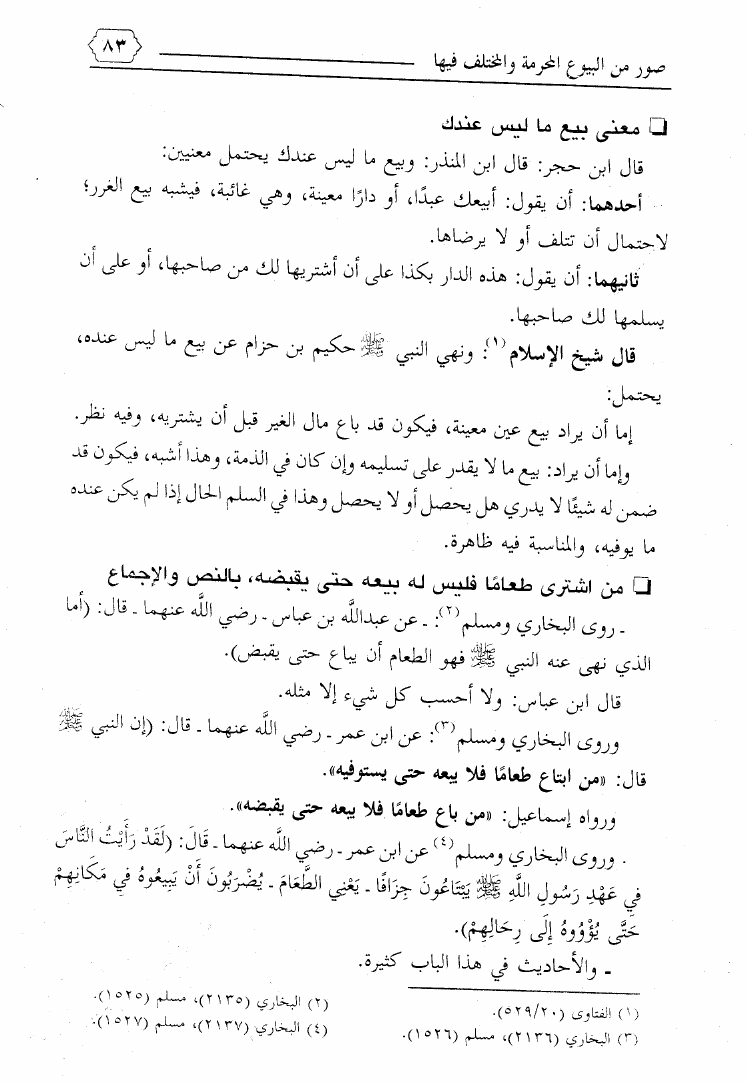 صور من البيوع المحرمة والمختلف فيها
٨٣
معنى بيع ما ليس عندك
قال ابن حجر: قال ابن المنذر: وبيع ما ليس عندك يحتمل معنيين:
أحدهما: أن يقول: أبيعك عبدًا، أو دارًا معينة، وهي غائبة، فيشبه بيع الغرر؛
لاحتمال أن تتلف أو لا يرضاها.
ثانيهما: أن يقول: هذه الدار بكذا على أن أشتريها لك من صاحبها، أو على أن
يسلمها لك صاحبها.
قال شيخ الإسلام(١): ونهي النبي ﷺ حكيم بن حزام عن بيع ما ليس عنده،
يحتمل:
إما أن يراد بيع عين معينة، فيكون قد باع مال الغير قبل أن يشتريه، وفيه نظر.
وإما أن يراد: بيع ما لا يقدر على تسليمه وإن كان في الذمة، وهذا أشبه، فيكون قد
ضمن له شيئًا لا يدري هل يحصل أو لا يحصل وهذا في السلم الحال إذا لم يكن عنده
ما يوفيه، والمناسبة فيه ظاهرة.
من اشترى طعامًا فليس له بيعه حتى يقبضه، بالنص والإجماع
ـ روى البخاري ومسلم(٢): ـ عن عبدالله بن عباس ـ رضي الله عنهما ـ قال: (أما
الذي نهى عنه النبي ﷺ فهو الطعام أن يباع حتى يقبض).
قال ابن عباس: ولا أحسب كل شيء إلا مثله.
وروى البخاري ومسلم(٣): عن ابن عمر ـ رضي الله عنهما ـ قال: (إن النبي ﷺ
قال: «من ابتاع طعامًا فلا يبعه حتى يستوفيه».
ورواه إسماعيل: «من باع طعامًا فلا يبعه حتى يقبضه».
. وروى البخاري ومسلم(٤) عن ابن عمر ـ رضي الله عنهما ـ قَالَ: (لَقَدْ رَأَيْتُ النَّاسَ
فِي عَهْدِ رَسُولِ اللَّهِ ﷺ يَبْتَاعُونَ جِزَافًا ـ يَعْنِي الطَّعَامَ ـ يُضْرَبُونَ أَنْ يَبِيعُوهُ فِي مَكَانِهِمْ
حَتَّى يُؤْوُوهُ إِلَى رِحَالِهِمْ).
ـ والأحاديث في هذا الباب كثيرة.
(١) الفتاوى (٥٢٩/٢٠).
(٢) البخاري (٢١٣٥)، مسلم (١٥٢٥).
(٣) البخاري (٢١٣٦)، مسلم (١٥٢٦).
(٤) البخاري (٢١٣٧)، مسلم (١٥٢٧).